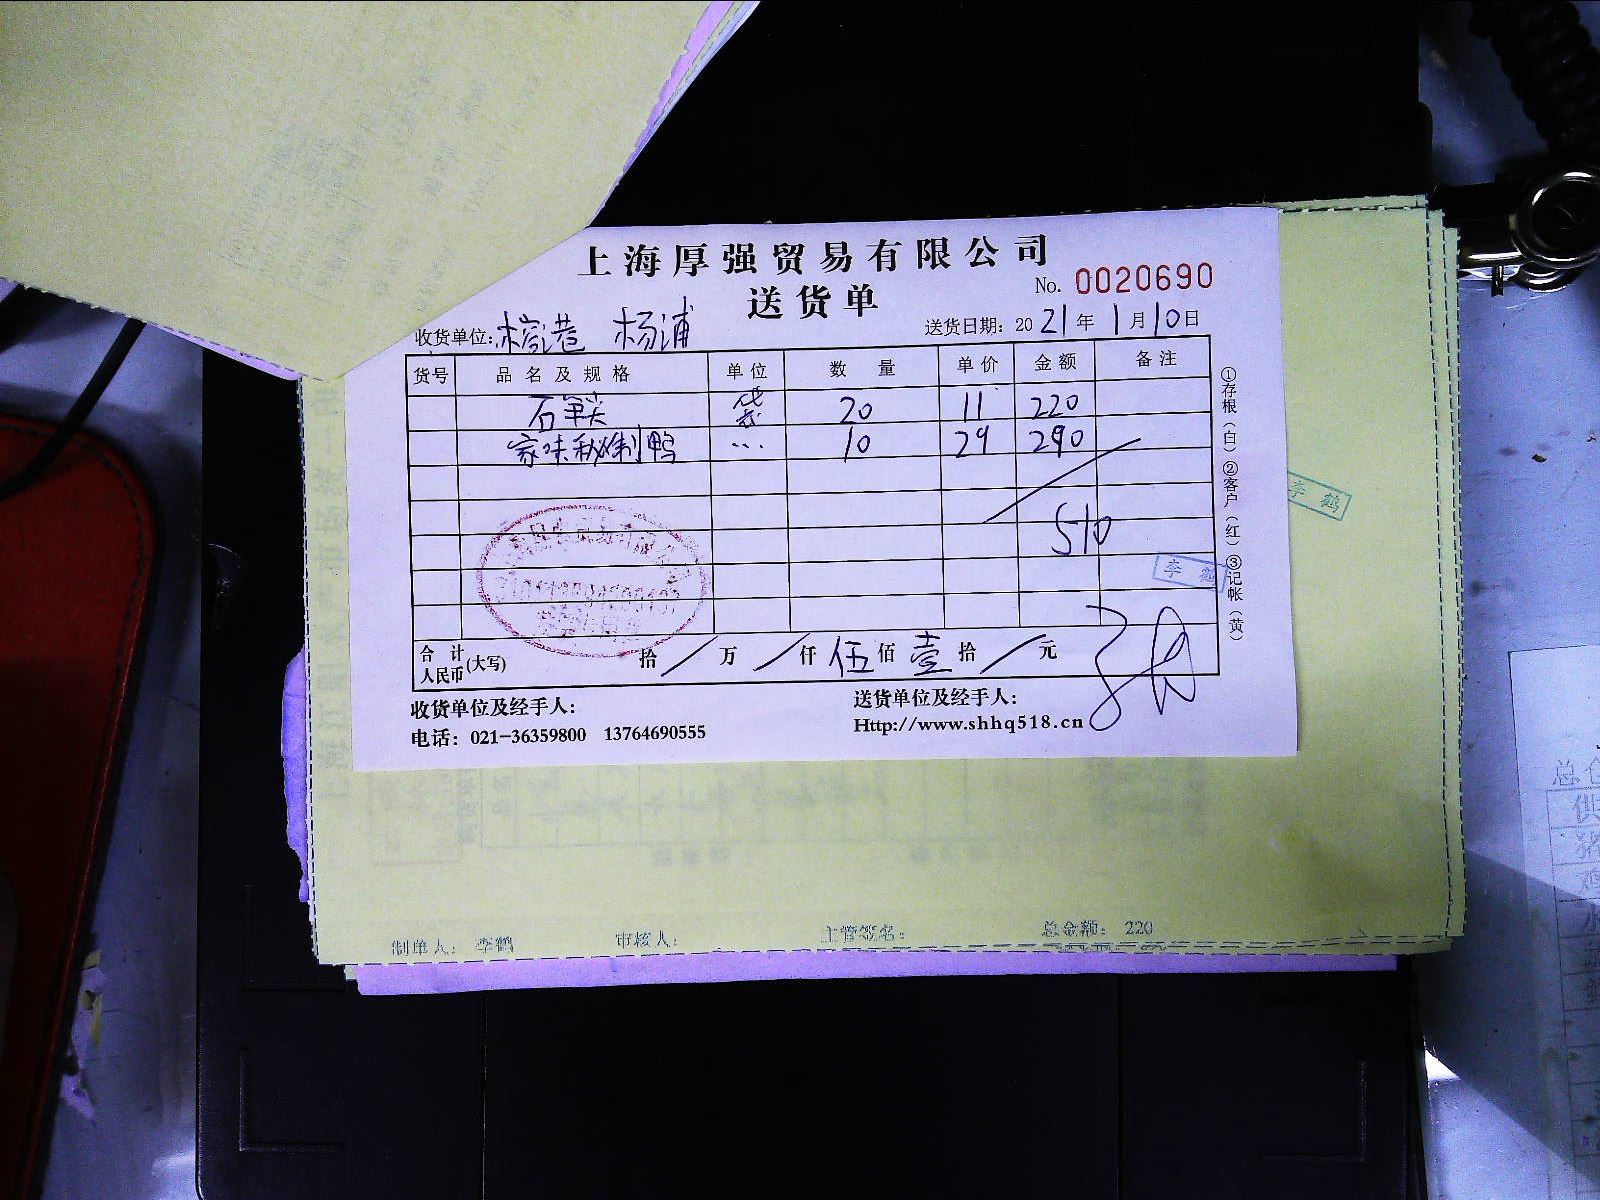 上海厚强贸易有限公司
No. 0020690
送货单
收货单位: 榕港 杨浦
送货日期: 2021年1月10日
货号 品名及规格 单位 数量 单价 金额 备注
袋 20 11 220
家味秘制鸭 … 10 29 290
510
李鹤
合计人民币(大写) 拾 / 万 / 仟 伍 佰 壹 拾 / 元
收货单位及经手人:
送货单位及经手人:
电话: 021-36359800 13764690555
Http://www.shhq518.cn
①存根(白)②客户(红)③记帐(黄)
李鹤
制单人: 李鹤 审核人: 主管签名: 总金额: 220